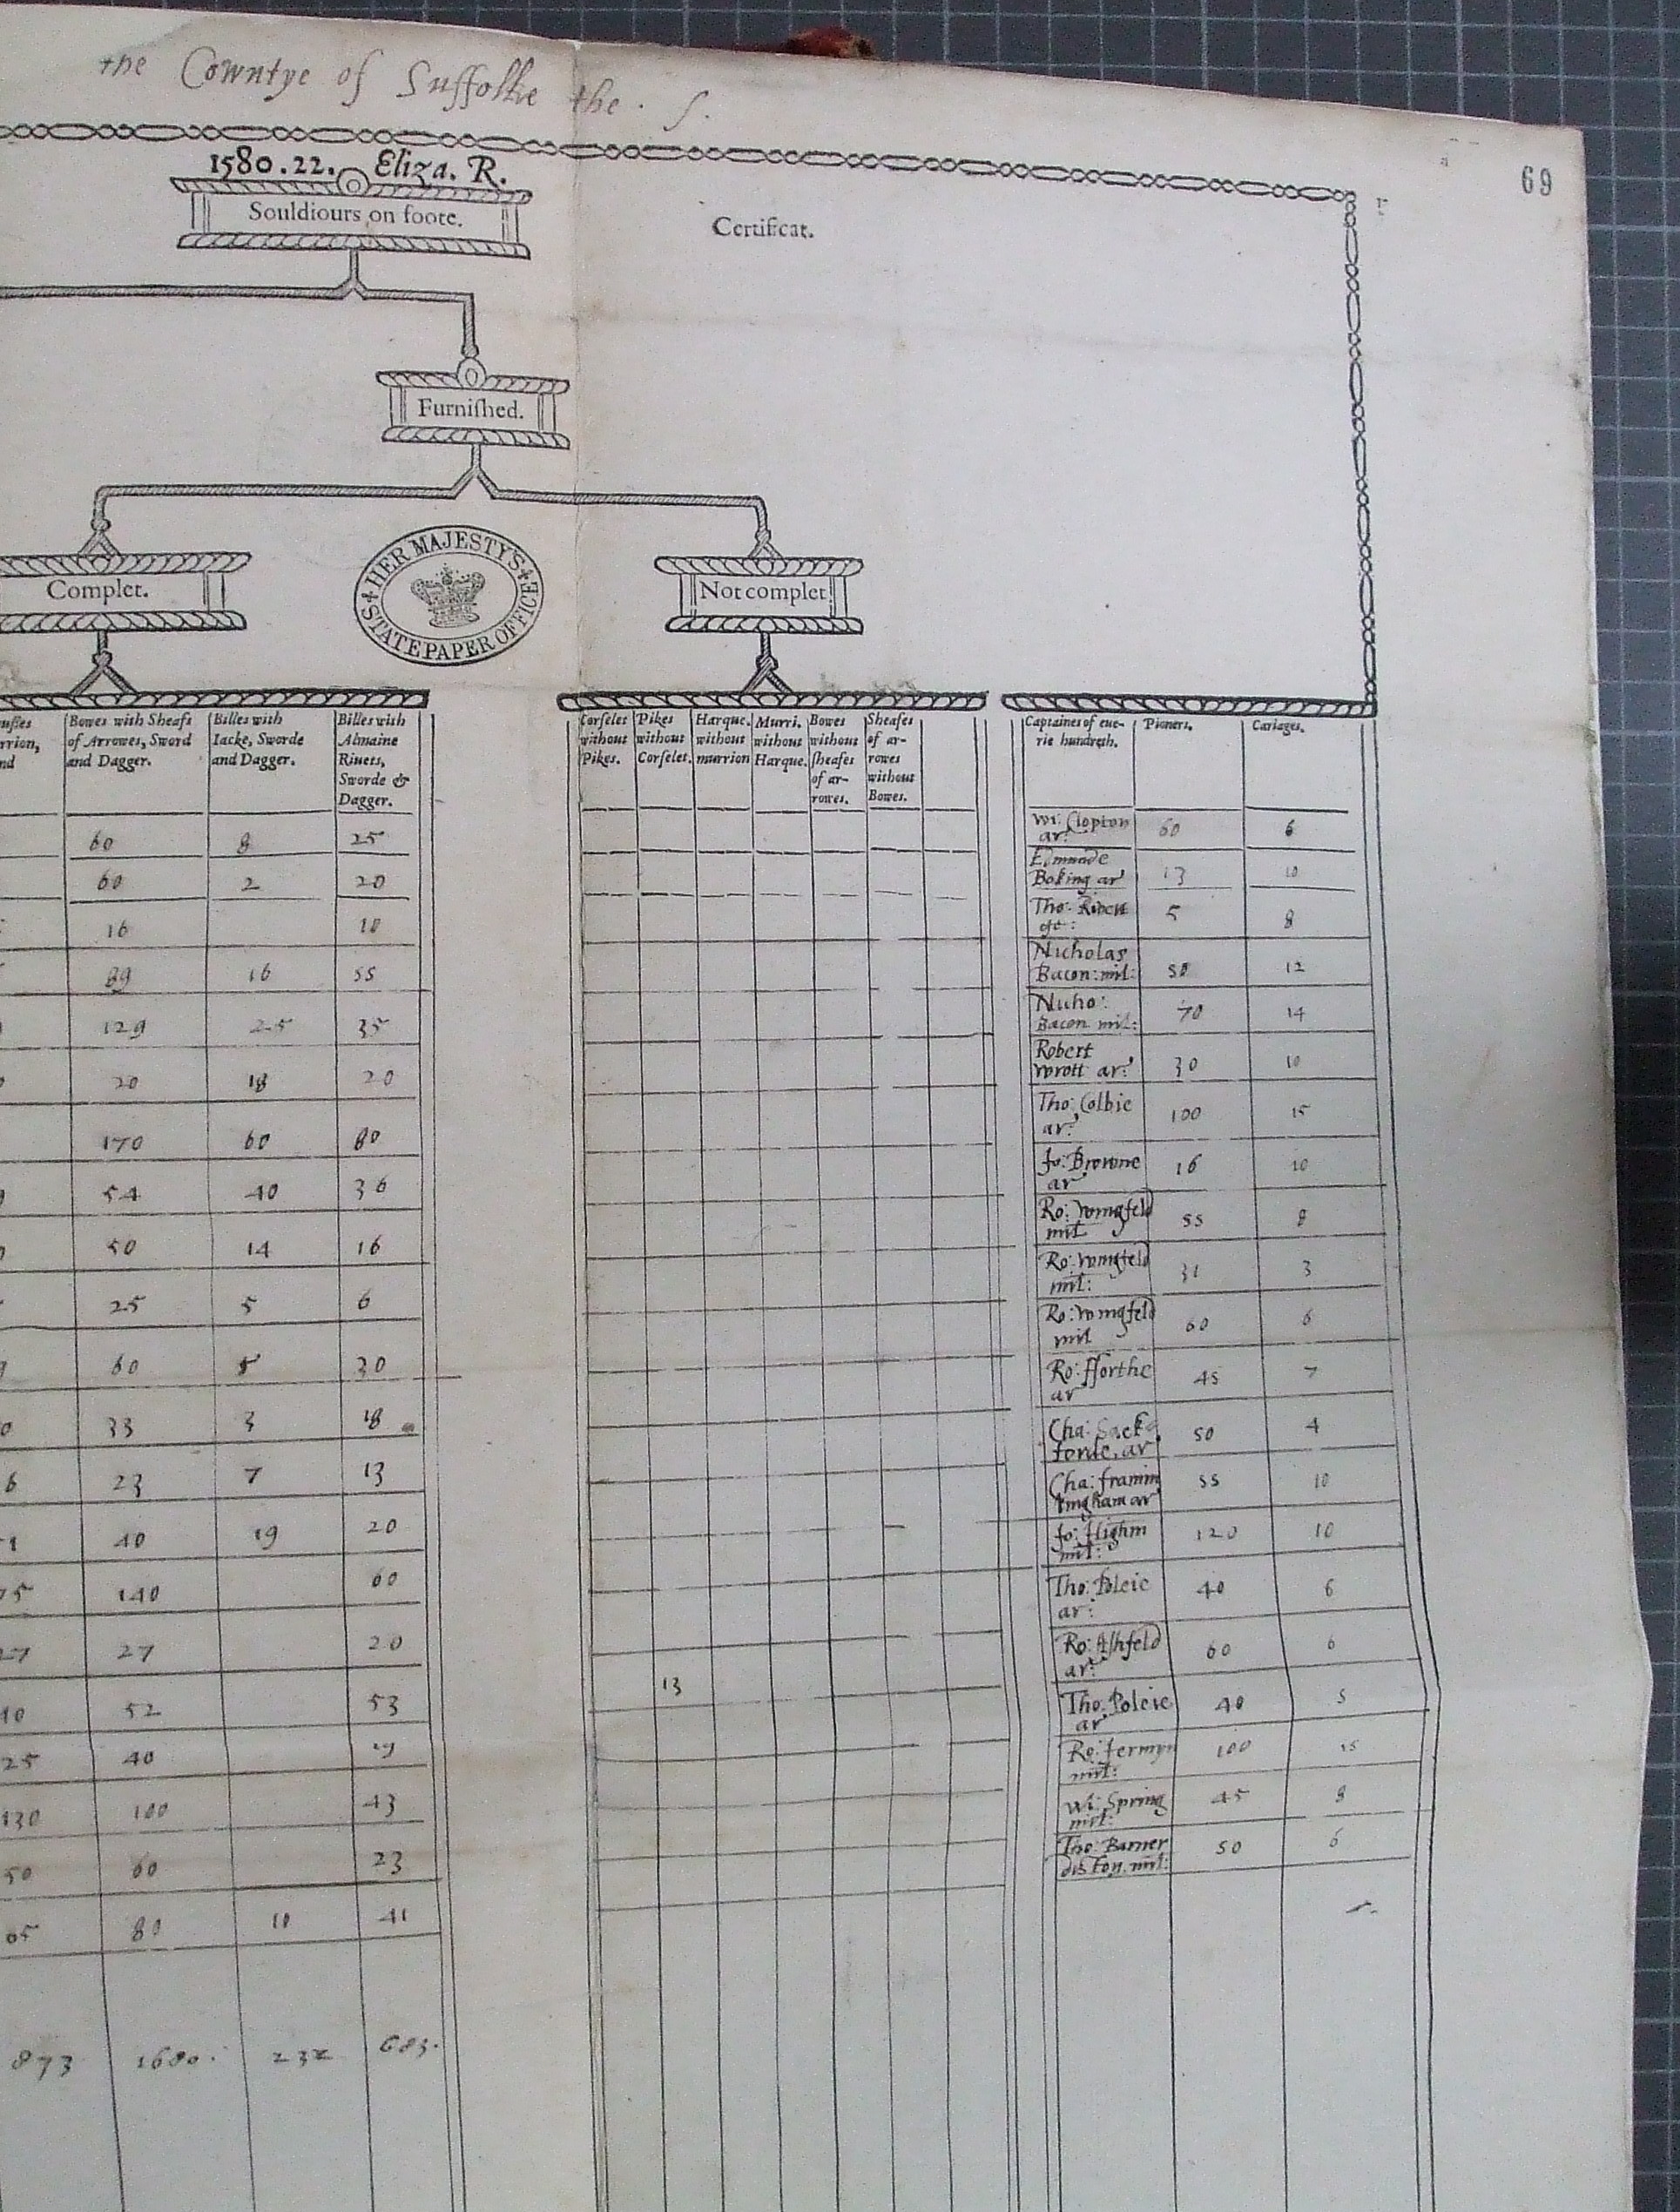 the Cowntye of Suffolke the . S.
69
1580.22. Eliza. R.
Souldiours on foote.
Certificat.
Furniſhed.
Complet.
HER MAJESTY'S STATE PAPER OFFICE
Not complet
Bowes with Sheafs of Arrowes, Sword and Dagger.
Billes with Iacke, Sworde and Dagger.
Billes with Almaine Riuets, Sworde & Dagger.
Corſelet without Pikes.
Pikes without Corſelet.
Harque. without murrion
Murri. without Harque.
Bowes without ſheafes of arrowes.
Sheafes of arrowes without Bowes.
Captaines of euerie hundreth.
Pioners.
Cariages.
60 8 25
60 2 20
16 10
89 16 55
129 25 35
20 18 20
170 60 80
54 40 36
50 14 16
25 5 6
60 5
33 3 18
6 23 7 13
40 19 20
140 60
27 20
52 53
25 40 19
130 100 43
50 60 23
65 80 10 41
873 1680. 232 683.
13
Wi: Clopton ar: 60 6
Edmunde Boking ar 13 10
Tho: 5 8
Nicholas Bacon: mil: 50 12
Nicho: Bacon mil: 70 14
Robert wrott ar: 30 10
Tho: Colbie ar: 100 15
Jo: Browne ar 16 10
Ro: wingfeld mil 55 8
Ro: wingfeld mil: 31 3
Ro: wingfeld mil 60 6
Ro: fforthe ar 45 7
Cha: Sackforde, ar 50 4
Cha: framinngham ar 55 10
Jo: Highm mil: 120 10
Tho: Poleie ar: 40 6
Ro: Ashfeld ar: 60 6
Tho: Poleie ar 40 5
Ro: Jermyn mil: 100 15
Wi: Spring mil: 45 8
Tho: Barnerdiston. mil: 50 6